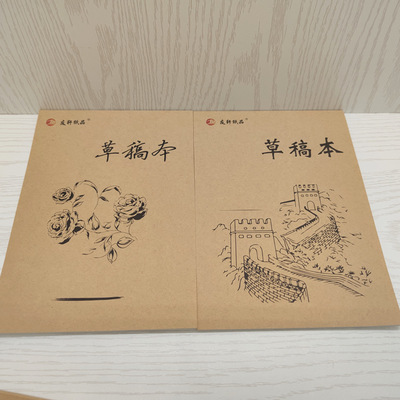 友轩纸品
草稿本
友轩纸品
草稿本